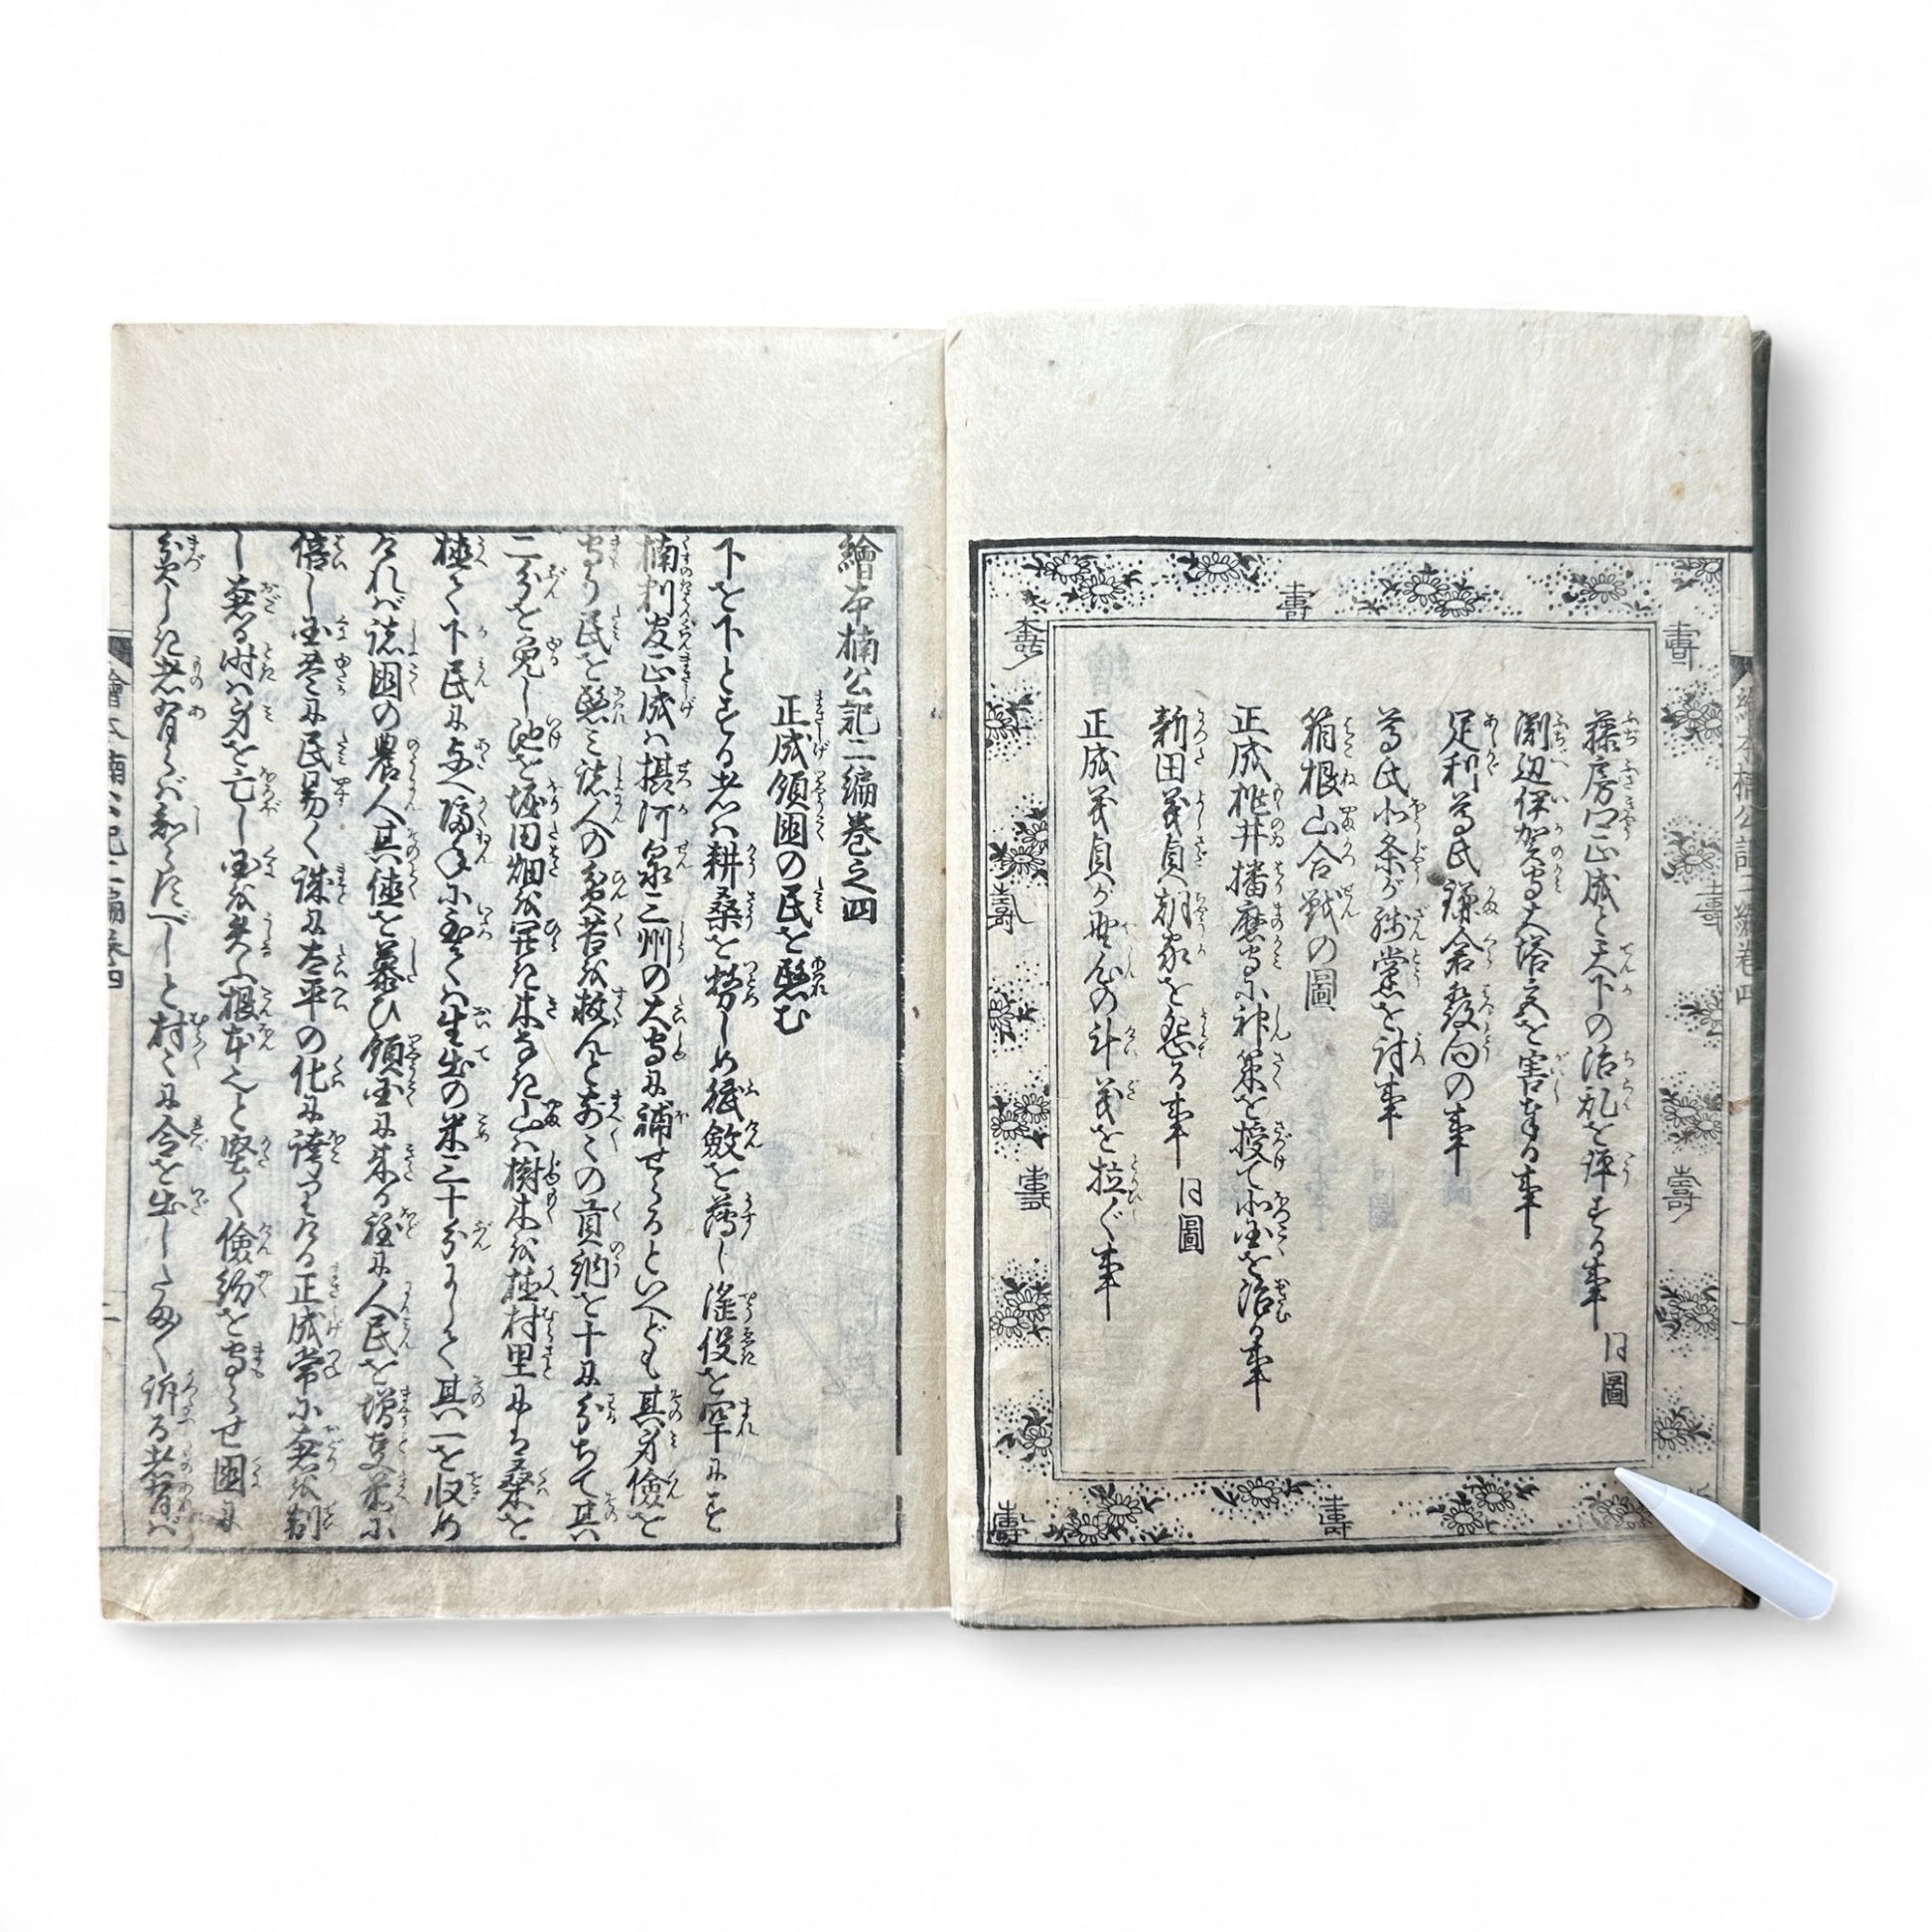 藤房正成と天下の治乱を評する事 同圖
渕辺伊賀守大塔宮を害奉る事
足利尊氏鎌倉発向の事
尊氏北条が残黨を討事
箱根山合戦の圖
正成桃井播磨守に神策を授て北国を治る事
新田義貞朝家を怨る事 同圖
正成義貞が野心の計義を拉ぐ事
繪本楠公記二編巻四
繪本楠公記二編巻之四
正成領國の民を愍む
下を下とする者ハ耕桑を勞しめ賦斂を薄し徭役を罕にす
楠判官正成ハ摂河泉三州の大守に補せらるといへども其身倹を
守り民を愍ミ諸人の貧苦を救んと前々の貢納を十に分ちて其
二分を免し池を堀田畑を開き木なき山ハ樹木を植村里にハ桑を
植て下民に与へ隔年に至てハ生出の米三十分にして其一を収め
ければ諸國の農人其徳を慕ひ領国に来る程に人民を増支前に
倍し国豊に民易く誠に太平の化に誇りける正成常に奢を制
し奢る時ハ身を亡し国を失ふ根本也と堅く倹約を守らせ國に
貧しき者有らバ知らすべしと村々に令を出したまく訴る者有バ
繪本楠公記二編巻四